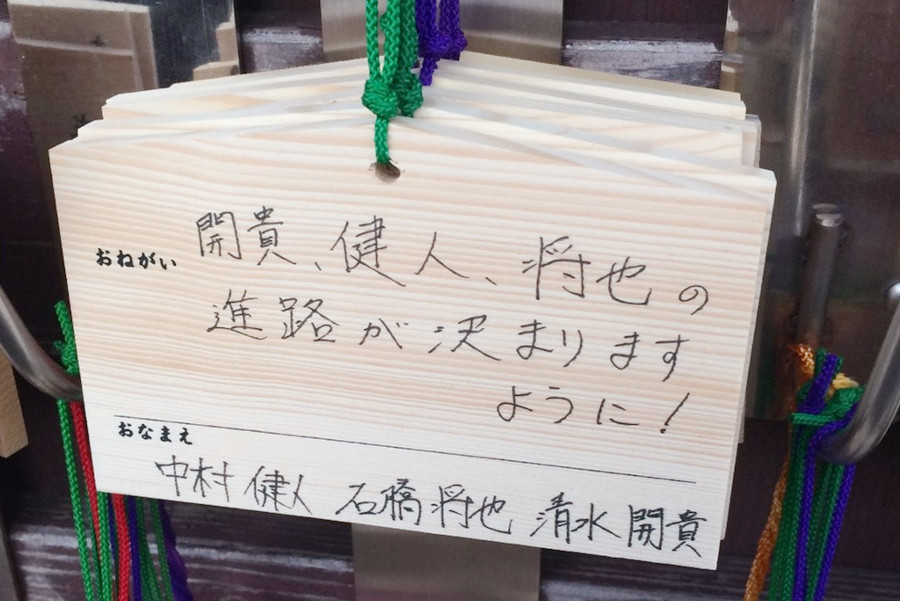 おねがい
開貴、健人、将也の
進路が決まります
ように!
おなまえ
中村健人 石橋将也 清水開貴